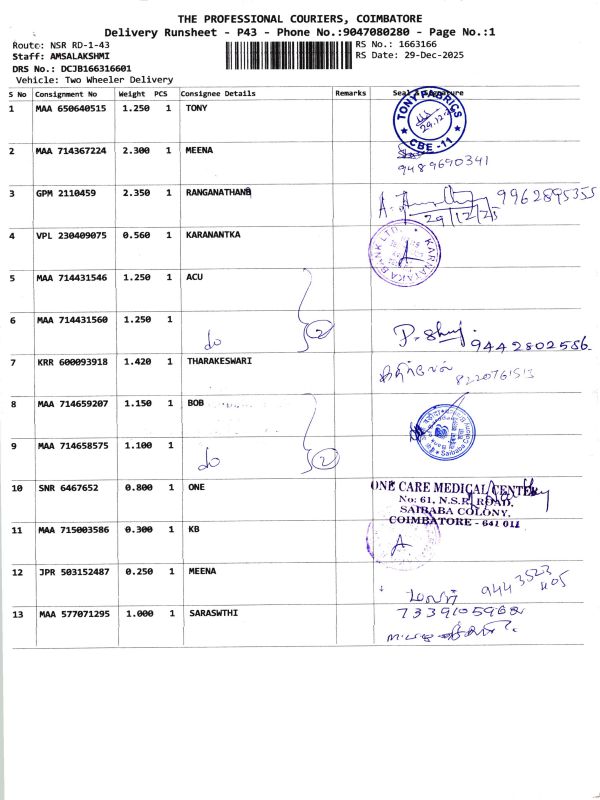 THE PROFESSIONAL COURIERS, COIMBATORE
Delivery Runsheet - P43 - Phone No.:9047080280 - Page No.:1
Route: NSR RD-1-43
RS No.: 1663166
Staff: AMSALAKSHMI
RS Date: 29-Dec-2025
DRS No.: DCJB166316601
Vehicle: Two Wheeler Delivery
S No Consignment No Weight PCS Consignee Details Remarks Seal & Signature
1 MAA 650640515 1.250 1 TONY
TONY FABRICS
29.12.25
CBE -11
2 MAA 714367224 2.300 1 MEENA
9489690341
3 GPM 2110459 2.350 1 RANGANATHAN
9962895355
29/12/25
4 VPL 230409075 0.560 1 KARANANTKA
KARNATAKA BANK LTD.
5 MAA 714431546 1.250 1 ACU
6 MAA 714431560 1.250 1
do 2
P. 9442802556
7 KRR 600093918 1.420 1 THARAKESWARI
கதிர்வேல்
8220761513
8 MAA 714659207 1.150 1 BOB
Saibaba Colony
9 MAA 714658575 1.100 1
do 2
10 SNR 6467652 0.800 1 ONE
ONE CARE MEDICAL CENTER
No: 61, N.S.R. ROAD,
SAIBABA COLONY,
COIMBATORE - 641 011
11 MAA 715003586 0.300 1 KB
12 JPR 503152487 0.250 1 MEENA
9443523
405
13 MAA 577071295 1.000 1 SARASWTHI
7339105968